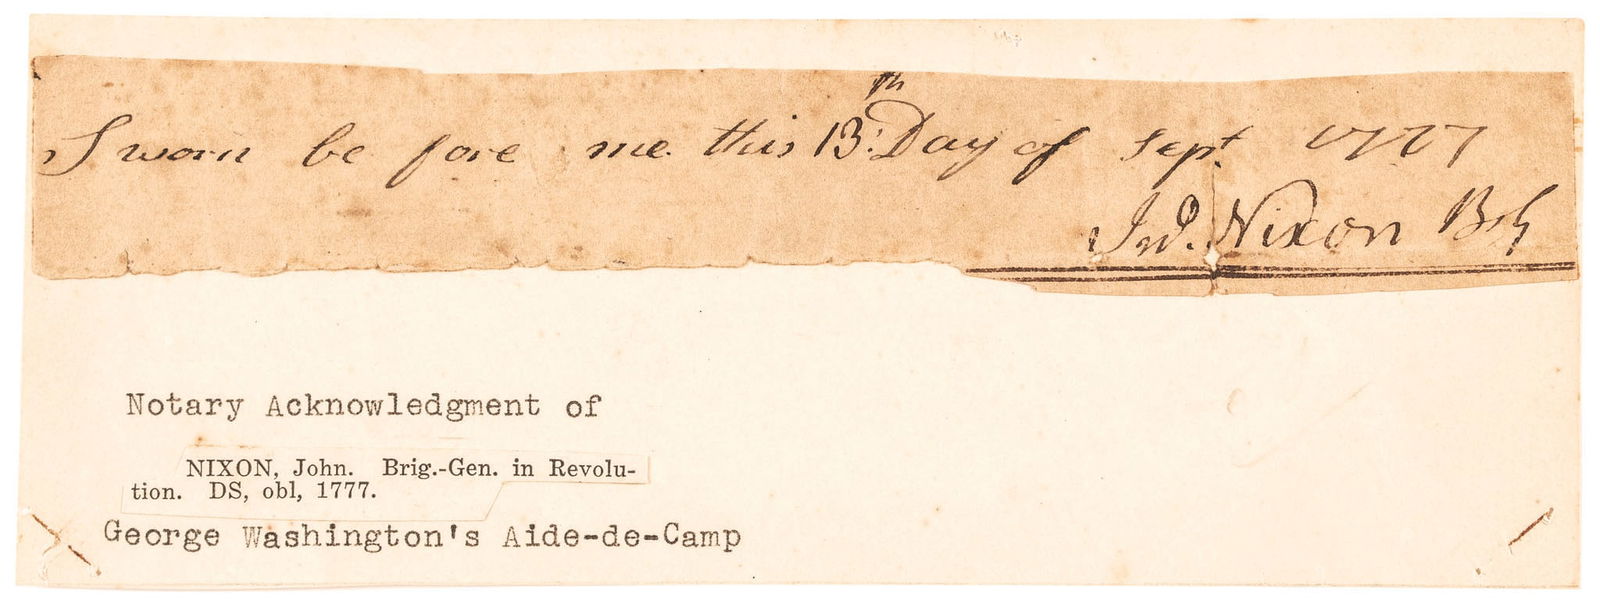 Sworn be fore me this 13th: Day of Sept 1777
Jno. Nixon BG
Notary Acknowledgment of
NIXON, John. Brig.-Gen. in Revolu-
tion. DS, obl, 1777.
George Washington's Aide-de-Camp